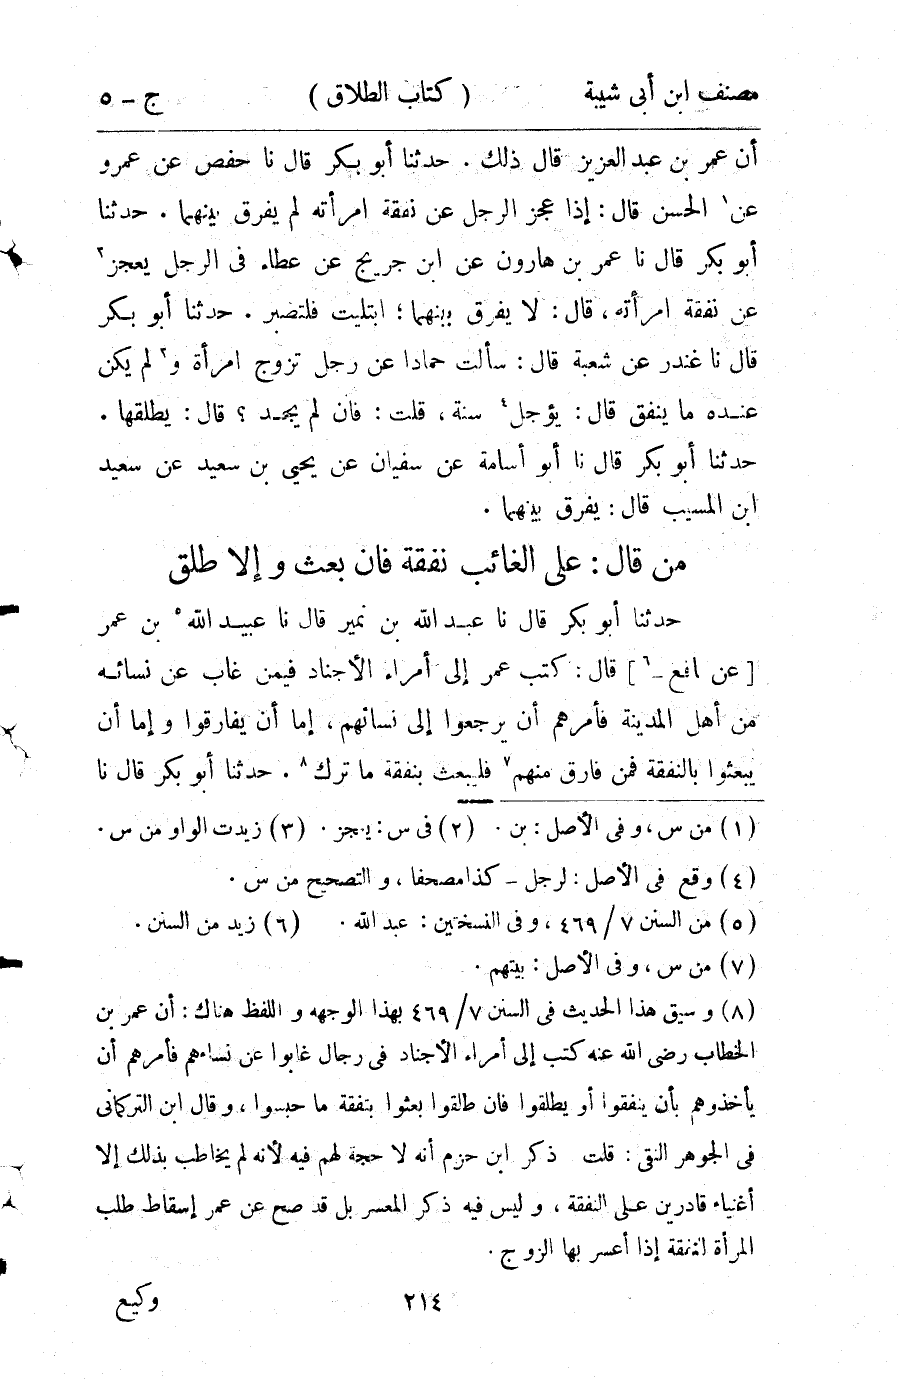 مصنف ابن أبى شيبة ( كتاب الطلاق ) ج - ٥
أن عمر بن عبد العزيز قال ذلك . حدثنا أبو بكر قال نا حفص عن عمرو
عن١ الحسن قال : إذا عجز الرجل عن نفقة امرأته لم يفرق بينهما . حدثنا
أبو بكر قال نا عمر بن هارون عن ابن جريج عن عطاء فى الرجل يعجز٢
عن نفقة امرأته ، قال : لا يفرق بينهما ؛ ابتليت فلتصبر . حدثنا أبو بكر
قال نا غندر عن شعبة قال : سألت حمادا عن رجل تزوج امرأة و٣ لم يكن
عنده ما ينفق قال : يؤجل٤ سنة ، قلت : فان لم يجد ؟ قال : يطلقها .
حدثنا أبو بكر قال نا أبو أسامة عن سفيان عن يحيى بن سعيد عن سعيد
ابن المسيب قال : يفرق بينهما .
من قال : على الغائب نفقة فان بعث و إلا طلق
حدثنا أبو بكر قال نا عبد الله بن نمير قال نا عبيد الله٥ بن عمر
[ عن نافع -٦ ] قال : كتب عمر إلى أمراء الأجناد فيمن غاب عن نسائه
من أهل المدينة فأمرهم أن يرجعوا إلى نسائهم ، إما أن يفارقوا و إما أن
يبعثوا بالنفقة فمن فارق منهم٧ فليبعث بنفقة ما ترك٨ . حدثنا أبو بكر قال نا
(١) من س ، و فى الأصل : بن . (٢) فى س : يجز . (٣) زيدت الواو من س .
(٤) وقع فى الأصل : لرجل - كذا مصحفا ، و التصحيح من س .
(٥) من السنن ٧/ ٤٦٩ ، و فى النسختين : عبد الله . (٦) زيد من السنن .
(٧) من س ، و فى الأصل : بيتهم .
(٨) و سيق هذا الحديث فى السنن ٧/ ٤٦٩ بهذا الوجهه و اللفظ هناك : أن عمر بن
الخطاب رضى الله عنه كتب إلى أمراء الأجناد فى رجال غابوا عن نساءهم فأمرهم أن
يأخذوهم بأن ينفقوا أو يطلقوا فان طالقوا بعثوا بنفقة ما حبسوا ، و قال ابن التركمانى
فى الجوهر النقى : قلت ذكر ابن حزم أنه لا حجة لهم فيه لأنه لم يخاطب بذلك إلا
أغنياء قادرين على النفقة ، و ليس فيه ذكر المعسر بل قد صح عن عمر إسقاط طلب
المرأة للنفقة إذا أعسر بها الزوج .
٢١٤ وكيع